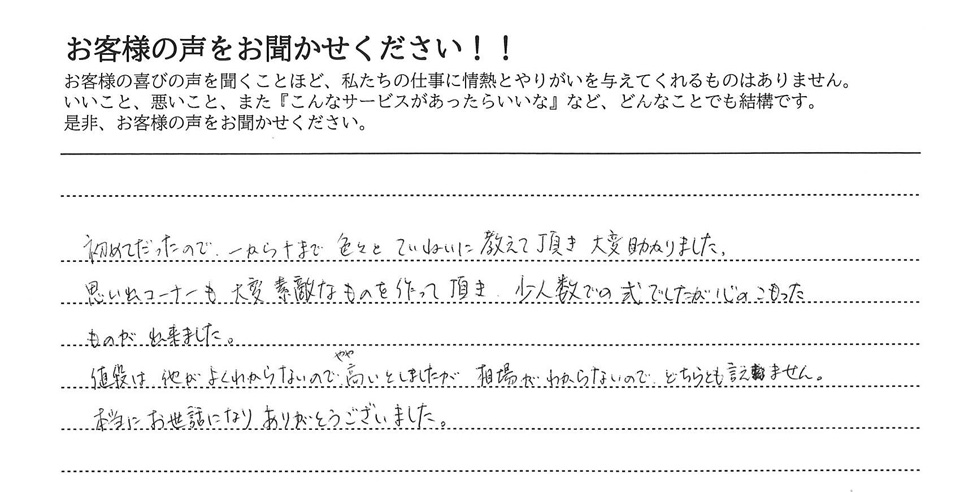 お客様の声をお聞かせください！！
お客様の喜びの声を聞くことほど、私たちの仕事に情熱とやりがいを与えてくれるものはありません。
いいこと、悪いこと、また『こんなサービスがあったらいいな』など、どんなことでも結構です。
是非、お客様の声をお聞かせください。
初めてだったので、一から十まで 色々と ていねいに 教えて頂き 大変助かりました。
思い出コーナーも 大変 素敵なものを作って 頂き、少人数での 式でしたが 心のこもった
ものが 出来ました。
やや
値段は 他が よくわからないので 高いとしましたが 相場が わからないので、どちらとも 言えません。
本当に お世話になり ありがとうございました。